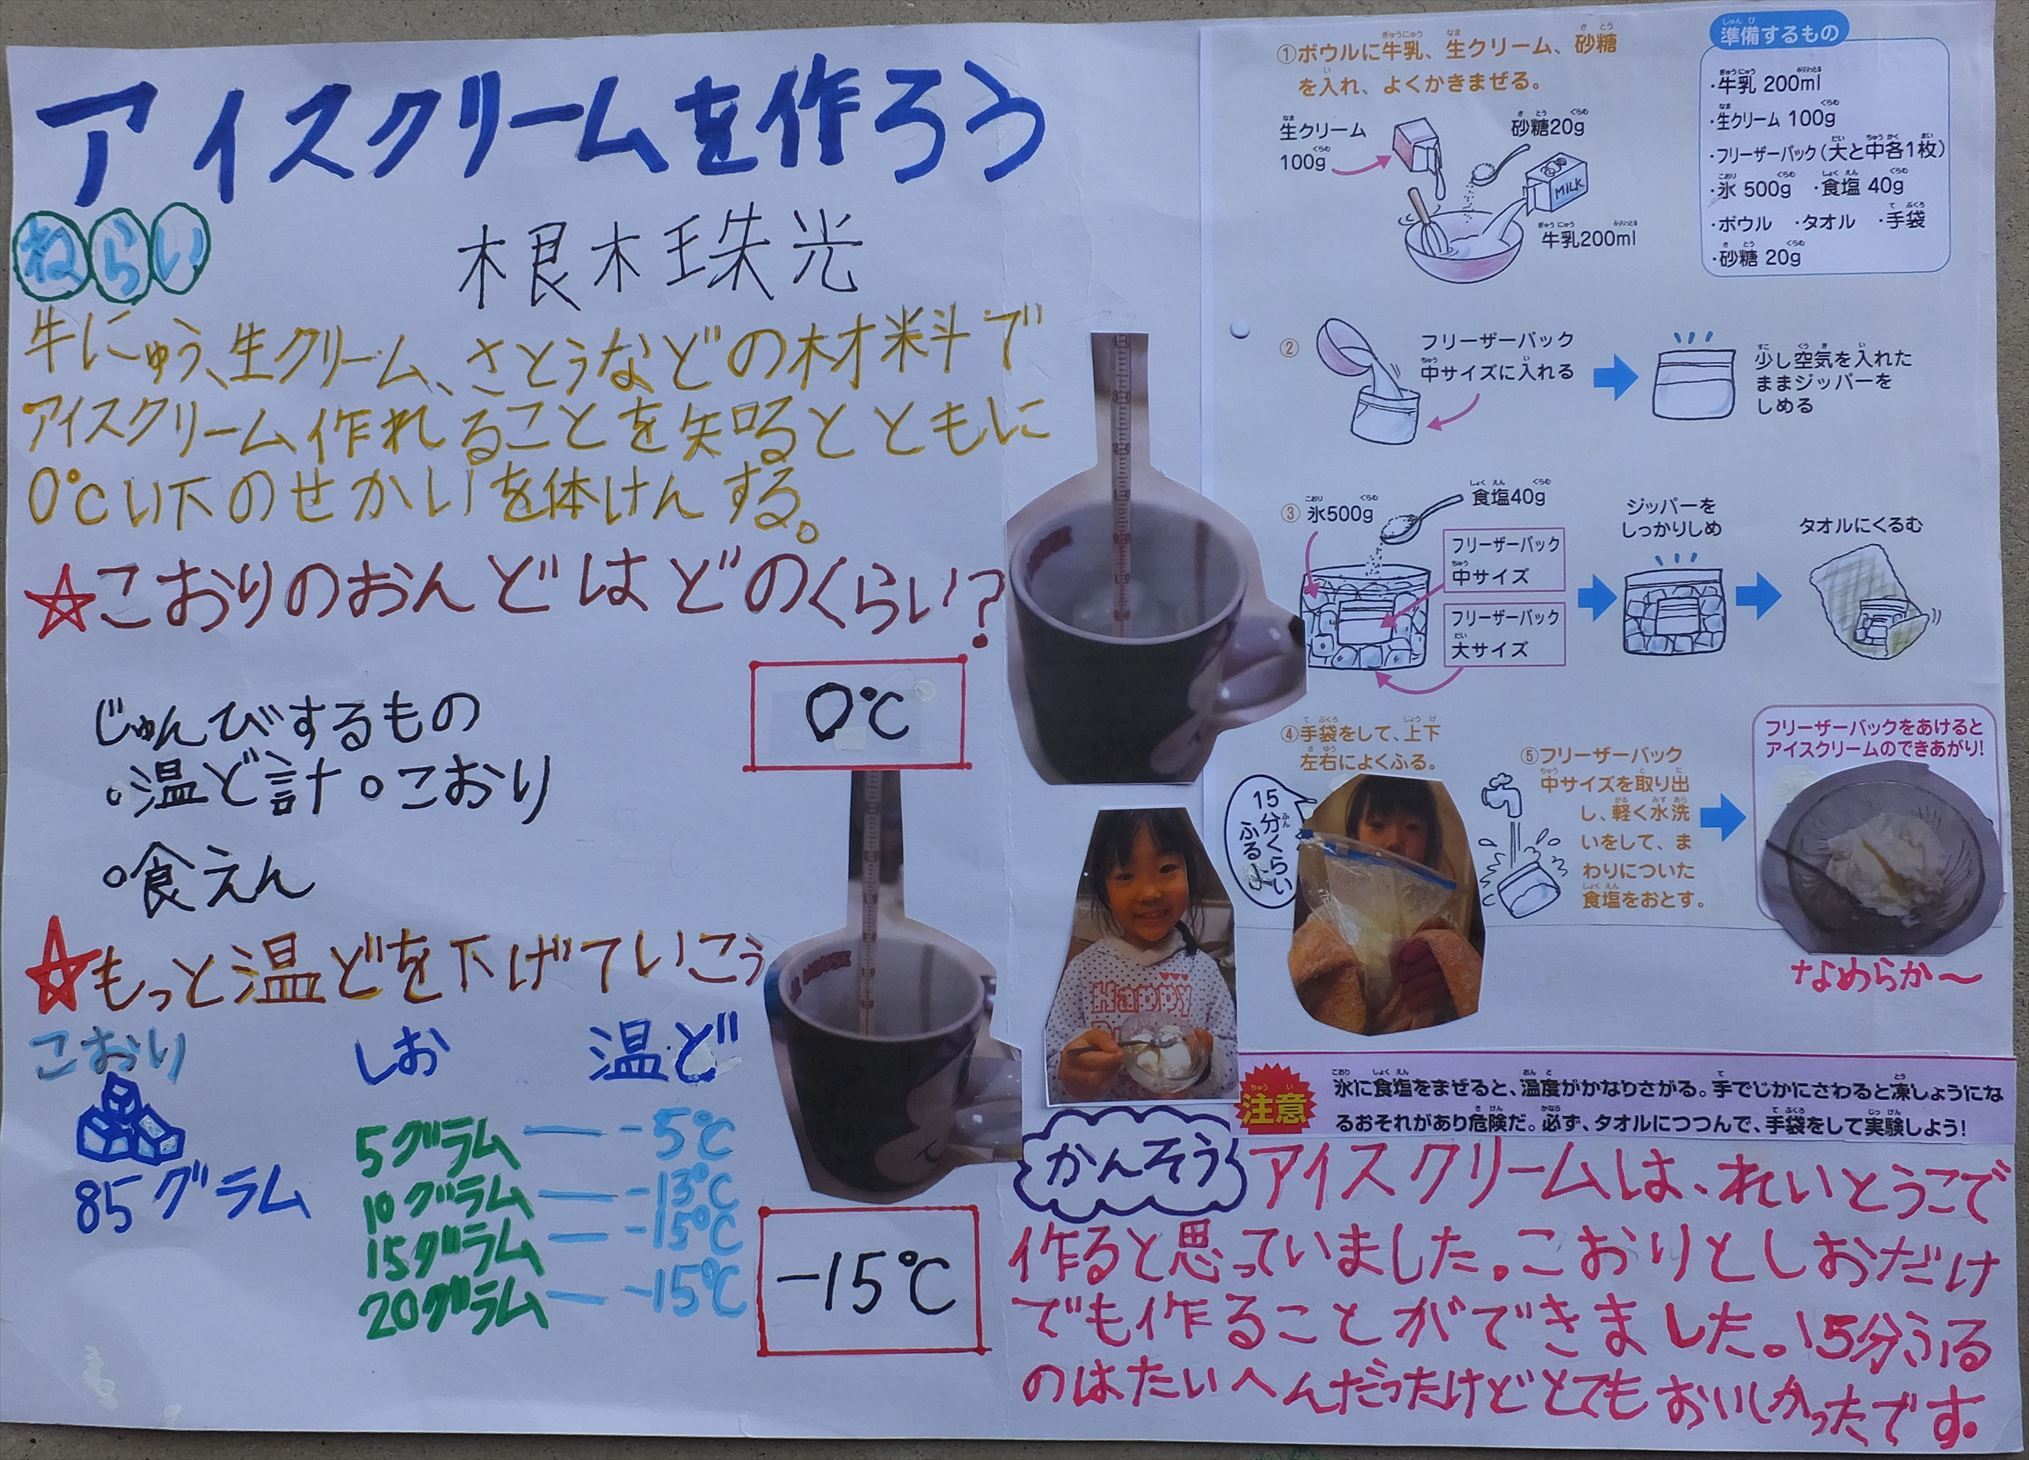 アイスクリームを作ろう
ねらい
根木珠光
牛にゅう、生クリーム、さとうなどの材料で
アイスクリーム作れることを知るとともに
0℃い下のせかいを体けんする。
☆こおりのおんどはどのくらい?
0℃
じゅんびするもの
・温ど計・こおり
・食えん
☆もっと温どを下げていこう
こおり しお 温ど
85グラム
5グラム — -5℃
10グラム — -13℃
15グラム — -15℃
20グラム — -15℃
-15℃
①ボウルに牛乳、生クリーム、砂糖
を入れ、よくかきまぜる。
生クリーム
100g
砂糖20g
MILK
牛乳200ml
準備するもの
・牛乳 200ml
・生クリーム 100g
・フリーザーバック(大と中各1枚)
・氷 500g ・食塩 40g
・ボウル ・タオル ・手袋
・砂糖 20g
②
フリーザーバック
中サイズに入れる
少し空気を入れた
ままジッパーを
しめる
③ 氷500g
食塩40g
フリーザーバック
中サイズ
フリーザーバック
大サイズ
ジッパーを
しっかりしめ
タオルにくるむ
④手袋をして、上下
左右によくふる。
15分くらい
ふるよ
⑤フリーザーバック
中サイズを取り出
し、軽く水洗
いをして、ま
わりについた
食塩をおとす。
フリーザーバックをあけると
アイスクリームのできあがり!
なめらか〜
Happy
注意
氷に食塩をまぜると、温度がかなりさがる。手でじかにさわると凍しょうにな
るおそれがあり危険だ。必ず、タオルにつつんで、手袋をして実験しよう!
かんそう
アイスクリームは、れいとうこで
作ると思っていました。こおりとしおだけ
でも作ることができました。15分ふる
のはたいへんだったけどとてもおいしかったです。